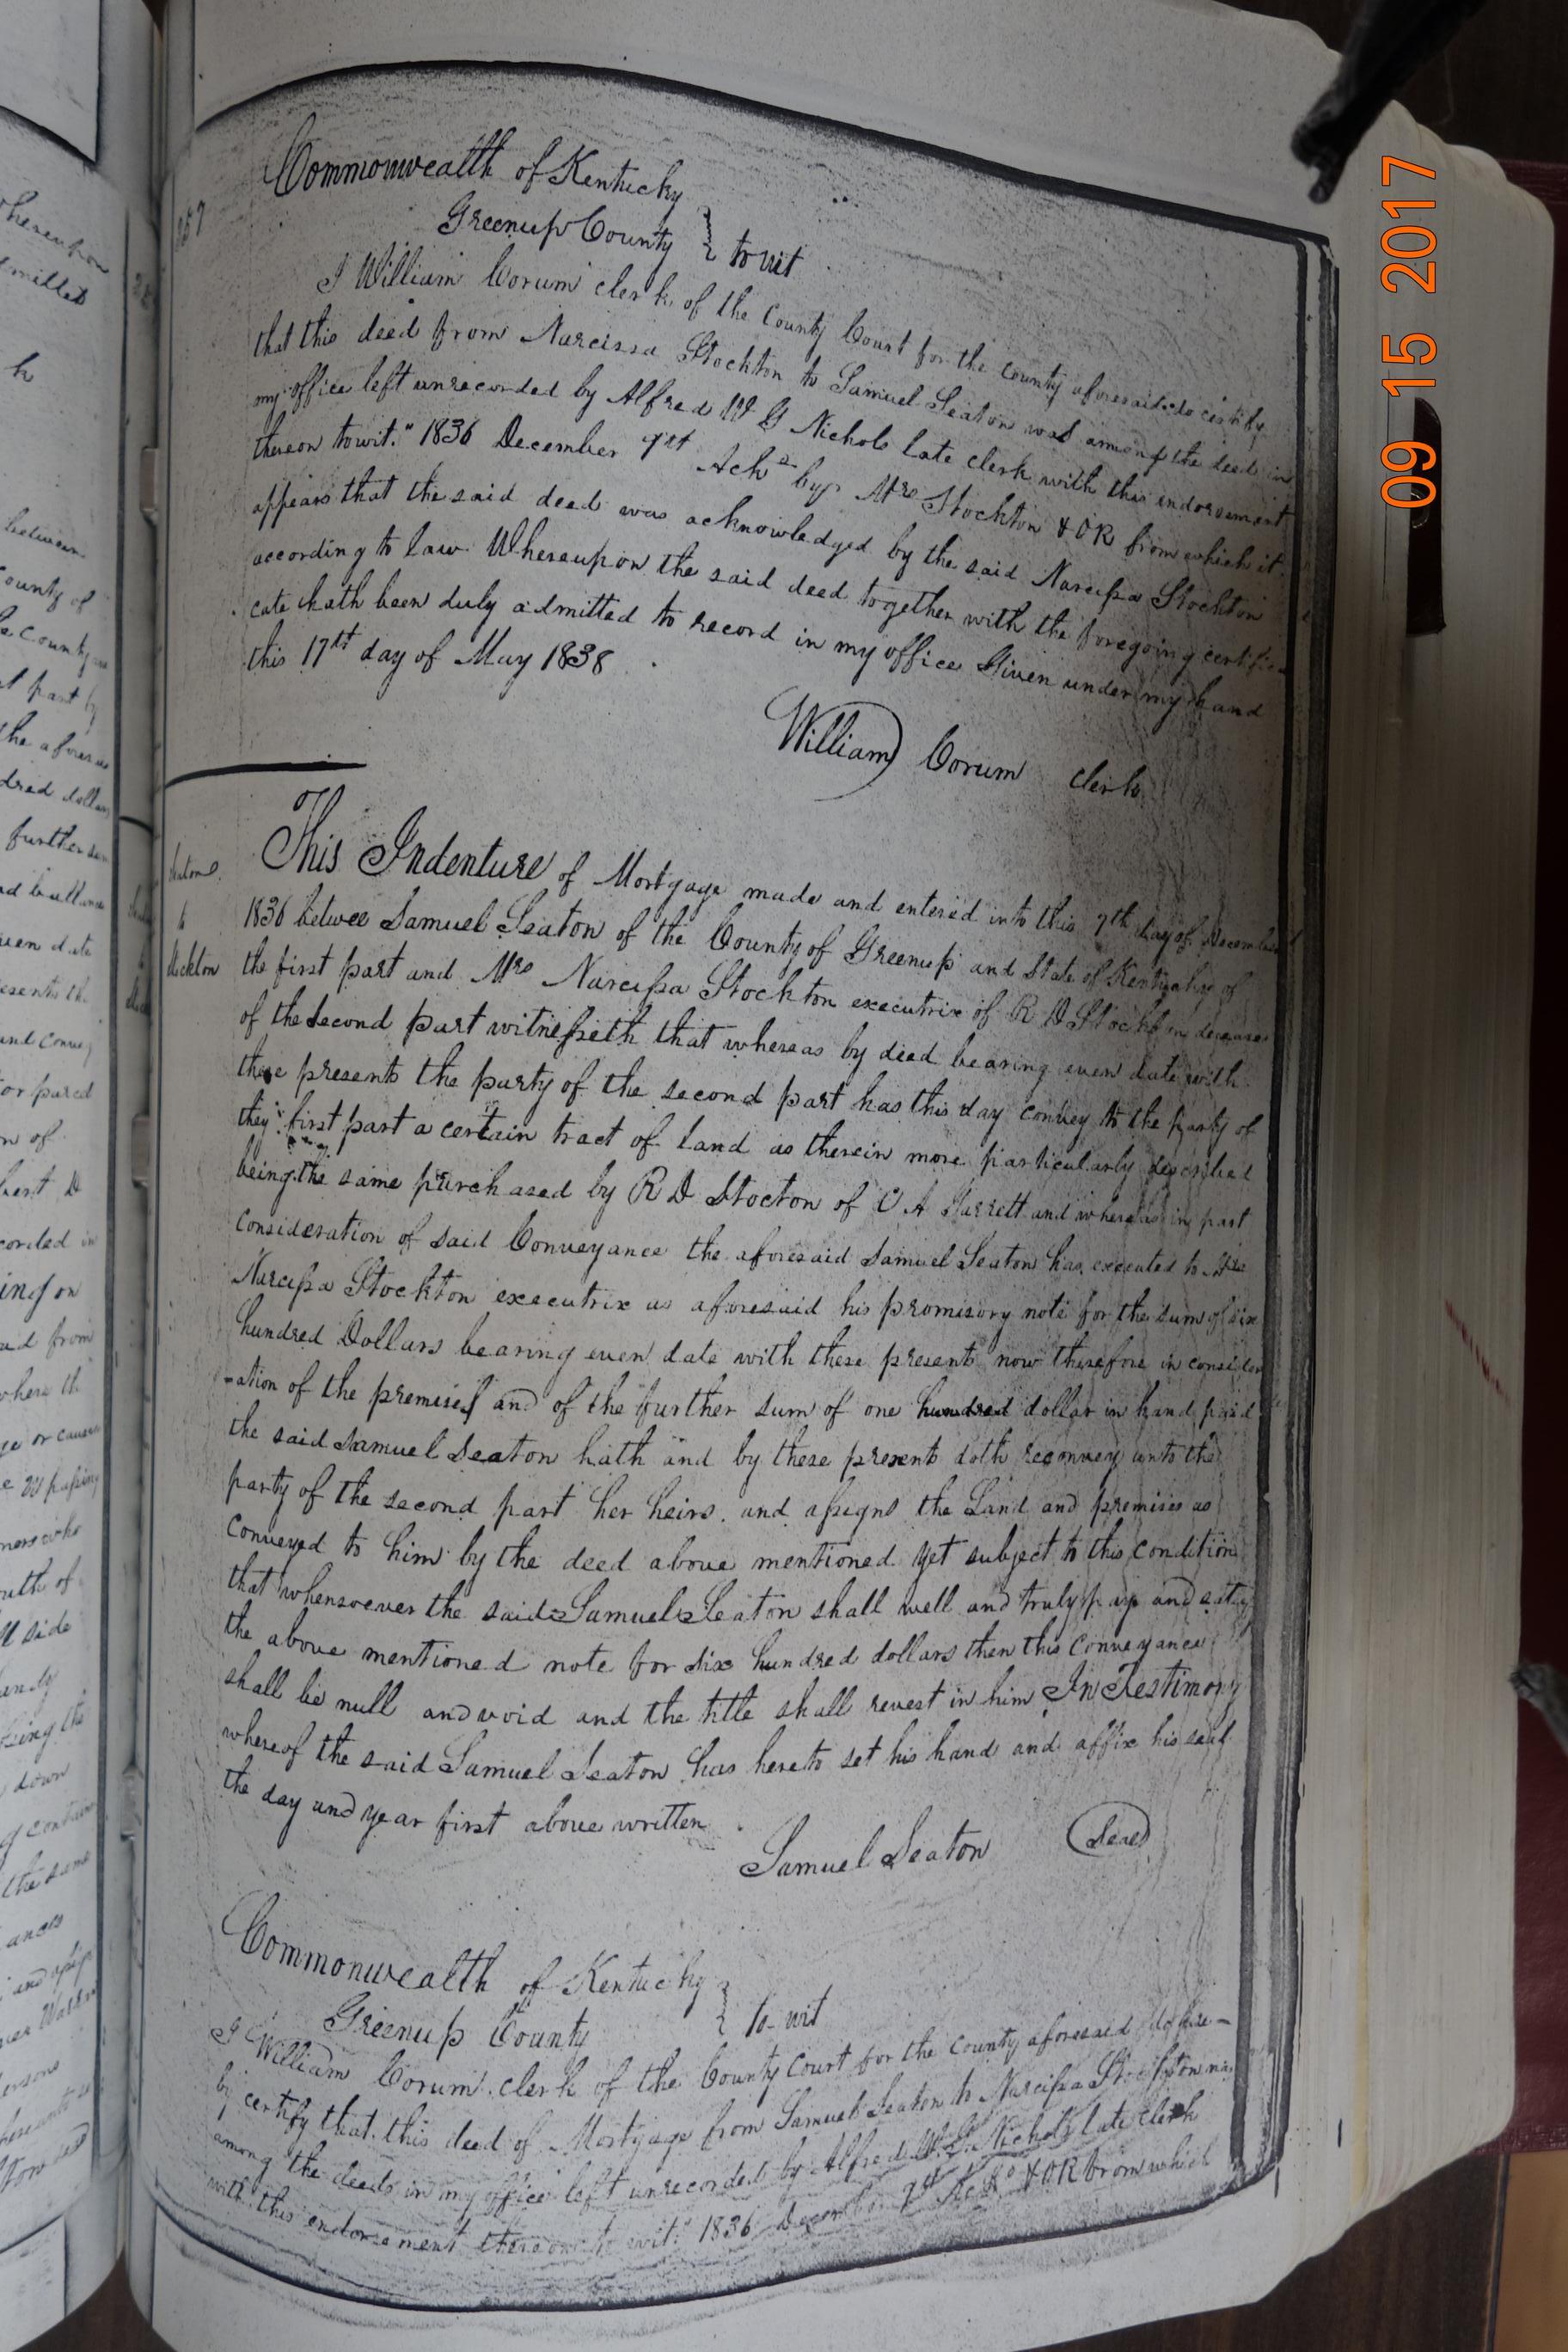 Commonwealth of Kentucky
Greenup County } to wit
I William Corum clerk of the County Court for the county aforesaid do certify
that this deed from Narcissa Stockton to Samuel Seaton was among the deeds in
my office left unrecorded by Alfred W G Nichols late clerk with this endorsement
thereon towit." 1836 December 7st Ackd by Mrs Stockton & OR from which it
appears that the said deed was acknowledged by the said Narcissa Stockton
according to law Whereupon the said deed together with the foregoing certifi-
cate hath been duly admitted to record in my office Given under my hand
this 17th day of May 1838
William Corum clerk
Seaton
to
Stockton
This Indenture of Mortgage made and entered into this 7th day of December
1836 betwee Samuel Seaton of the County of Greenup and State of Kentucky of
the first part and Mrs Narcissa Stockton executrix of R D Stockton deceased
of the second part witnesseth that whereas by deed bearing even date with
these presents the party of the second part has this day convey to the party of
they first part a certain tract of land as therein more particularly described
being the same purchased by R D Stocton of
consideration of said Conveyance the aforesaid Samuel Seaton has executed to Mrs
Narcissa Stockton executrix as aforesaid his promisory note for the sum of six
hundred Dollars bearing even date with these present now therefore in consider
-ation of the premises and of the further sum of one hundred dollar in hand paid
the said Samuel Seaton hath and by these presents doth reconvey unto the
party of the second part her heirs and assigns the Land and premises as
conveyed to him by the deed above mentioned yet subject to this condition
that whensoever the said Samuel Seaton shall well and truly pay and satisfy
the above mentioned note for six hundred dollars then this conveyance
shall be null and void and the title shall revest in him In Testimony
whereof the said Samuel Seaton has hereto set his hand and affix his seal
the day and year first above written
Samuel Seaton Seal
Commonwealth of Kentucky
Greenup County } to wit
I William Corum clerk of the County Court for the County aforesaid do here-
by certify that this deed of Mortgage from Samuel Seaton to Narcissa Stockton was
among the deeds in my office left unrecorded by Alfred W. G. Nichols late clerk
with this endorsement thereon to wit." 1836 December 7st Ackd & OR from which
09 15 2017